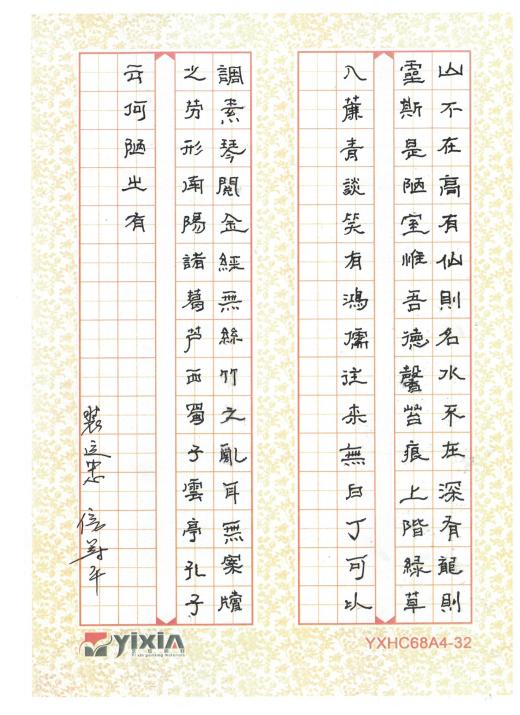 山不在高有仙則名水不在深有龍則
靈斯是陋室惟吾德馨苔痕上階緑草
入簾青談笑有鴻儒往來無白丁可以
調素琴閱金經無絲竹之亂耳無案牘
之劳形南陽諸葛芦西蜀子雲亭孔子
云何陋之有
YIXIA
YXHC68A4-32